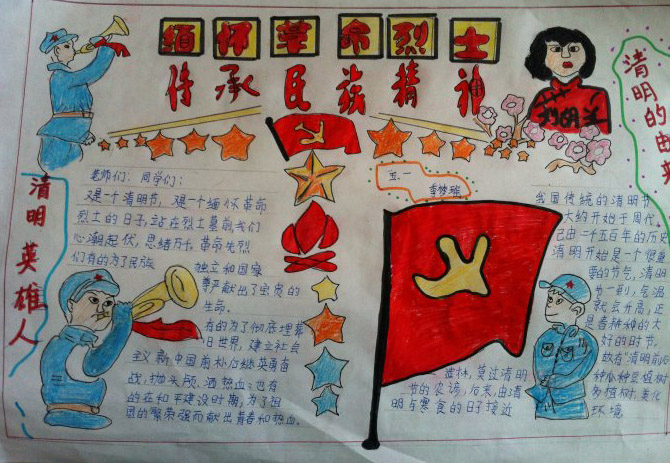 缅怀革命烈士
传承民族精神
清明的由来
清明英雄人
刘胡兰
五.一
老师们：同学们：
又是一个清明节，又是一个缅怀革命
烈士的日子，站在烈士墓前，我们
心潮起伏，思绪万千。革命先烈
们有的为了民族
独立和国家
尊严献出了宝贵的
生命.
有的为了彻底埋葬
旧世界，建立社会
主义新中国前朴后继英勇奋
战，抛头颅，洒热血；也有
的在和平建设时期，为了祖
国的繁荣强而献出青春和热血。
我国传统的清明节
大约开始于周代，
已由二千五百年的历史
清明开始是个很重
要的节气，清明
一到，气温
就会升高，正
是春耕种的大
好的时节.
故有“清明前后
种瓜种豆植树
造林，莫过清明
节的农谚，后来，由清
明与寒食的日子接近
多植树，美化
环境